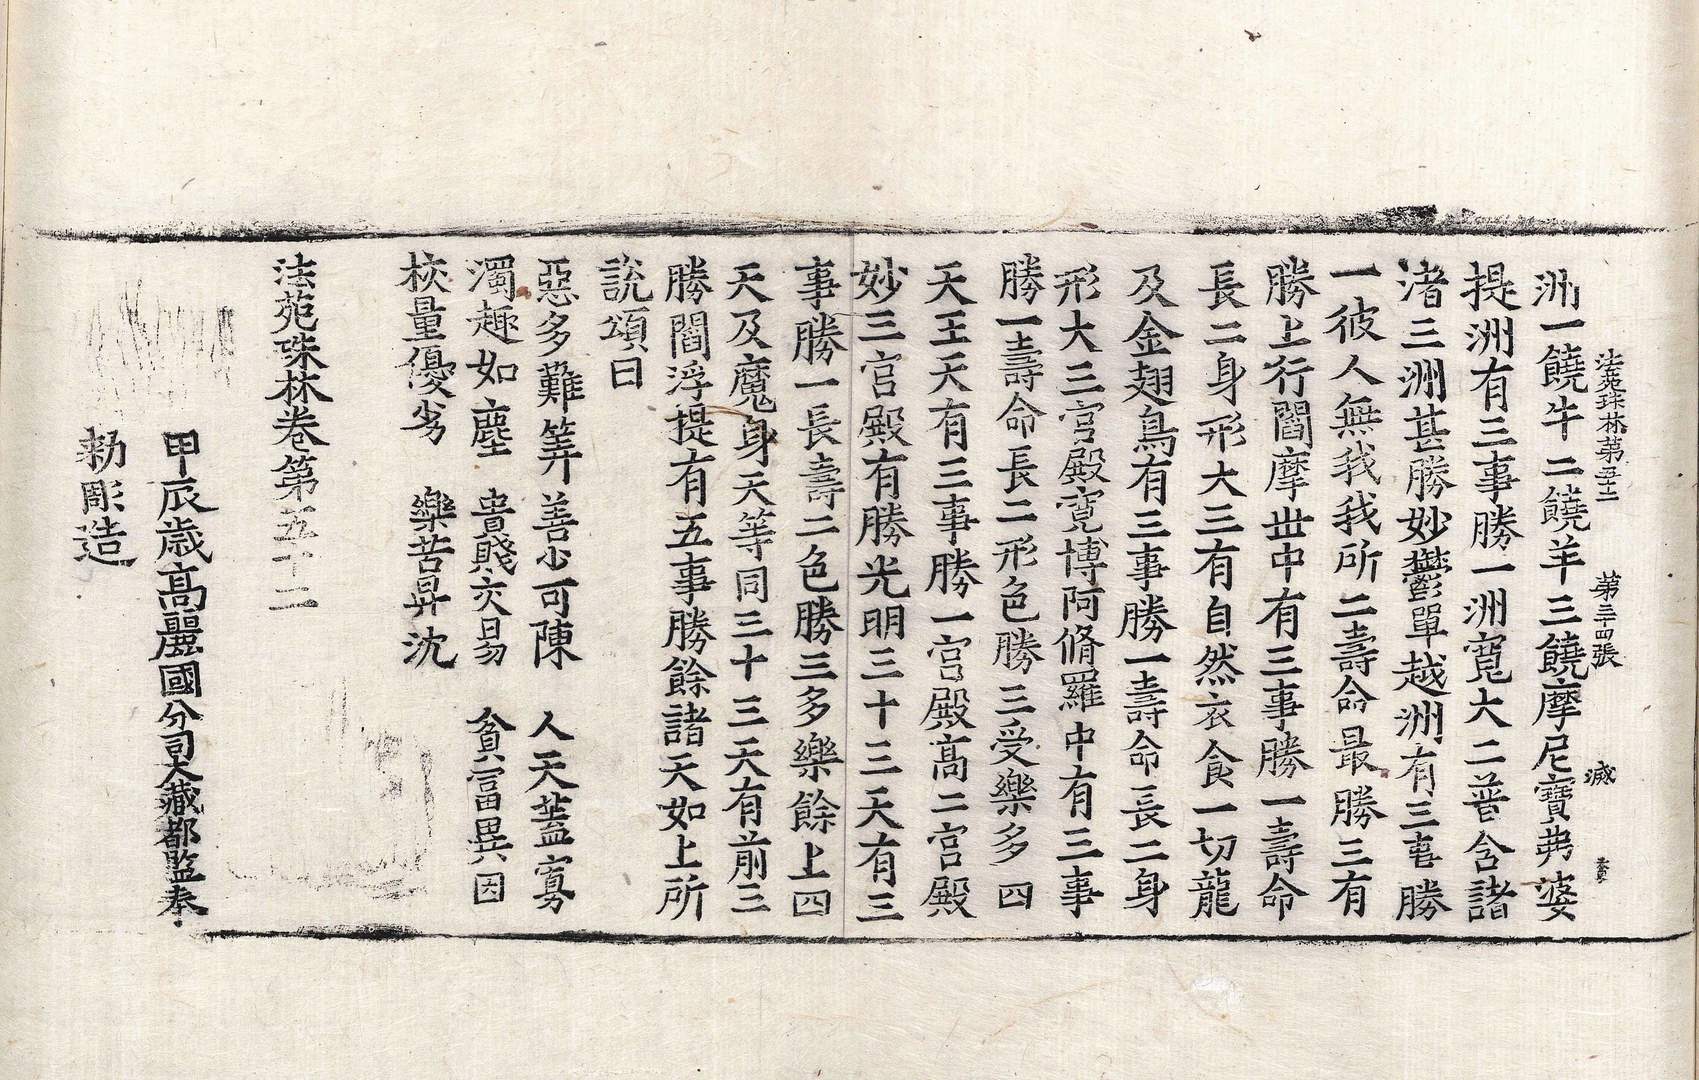 法苑珠林第五十二 第三十四張 滅
洲一饒牛二饒羊三饒摩尼寶弗婆
提洲有三事勝一洲寬大二普含諸
渚三洲甚勝妙鬱單越洲有三事勝
一彼人無我我所二壽命最勝三有
勝上行閻摩丗中有三事勝一壽命
長二身形大三有自然衣食一切龍
及金翅鳥有三事勝一壽命長二身
形大三宮殿寬博阿脩羅中有三事
勝一壽命長二形色勝三受樂多四
天王天有三事勝一宮殿髙二宮殿
妙三宮殿有勝光明三十三天有三
事勝一長壽二色勝三多樂餘上四
天及魔身天等同三十三天有前三
勝閻浮提有五事勝餘諸天如上所
說頌曰
惡多難筭 善少可陳 人天葢寡
濁趣如塵 貴賤交易 貧富異因
校量優劣 樂苦昇沈
法苑珠林卷第五十二
甲辰歲髙麗國分司大藏都監奉
勑彫造